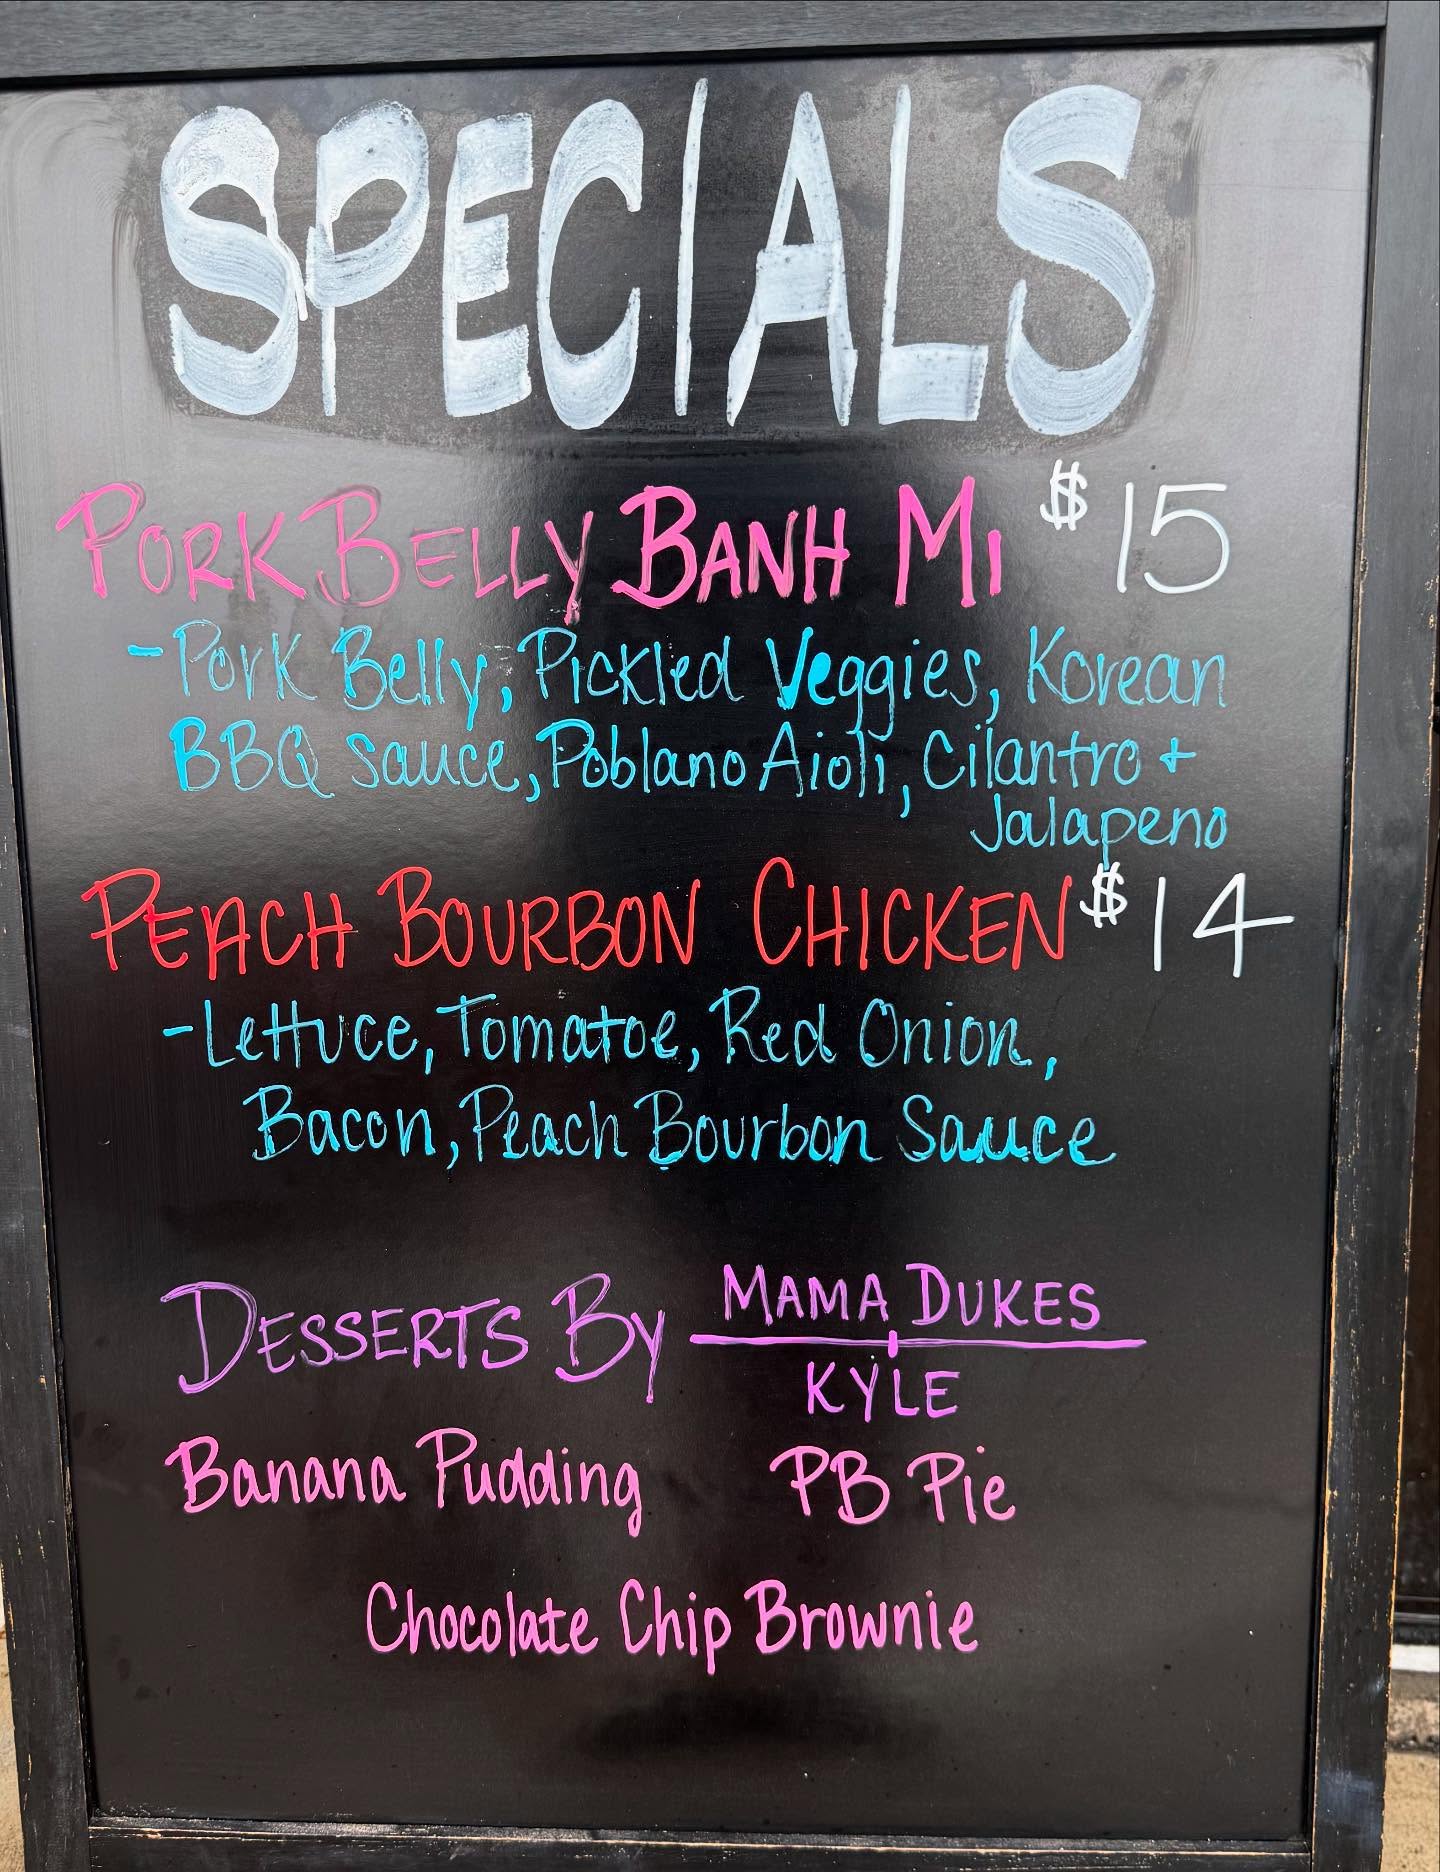 SPECIALS
PORK BELLY BANH MI $15
-Pork Belly, Pickled Veggies, Korean
BBQ Sauce, Poblano Aioli, Cilantro +
Jalapeno
PEACH BOURBON CHICKEN $14
-Lettuce, Tomatoe, Red Onion,
Bacon, Peach Bourbon Sauce
DESSERTS BY MAMA DUKES
KYLE
Banana Pudding PB Pie
Chocolate Chip Brownie